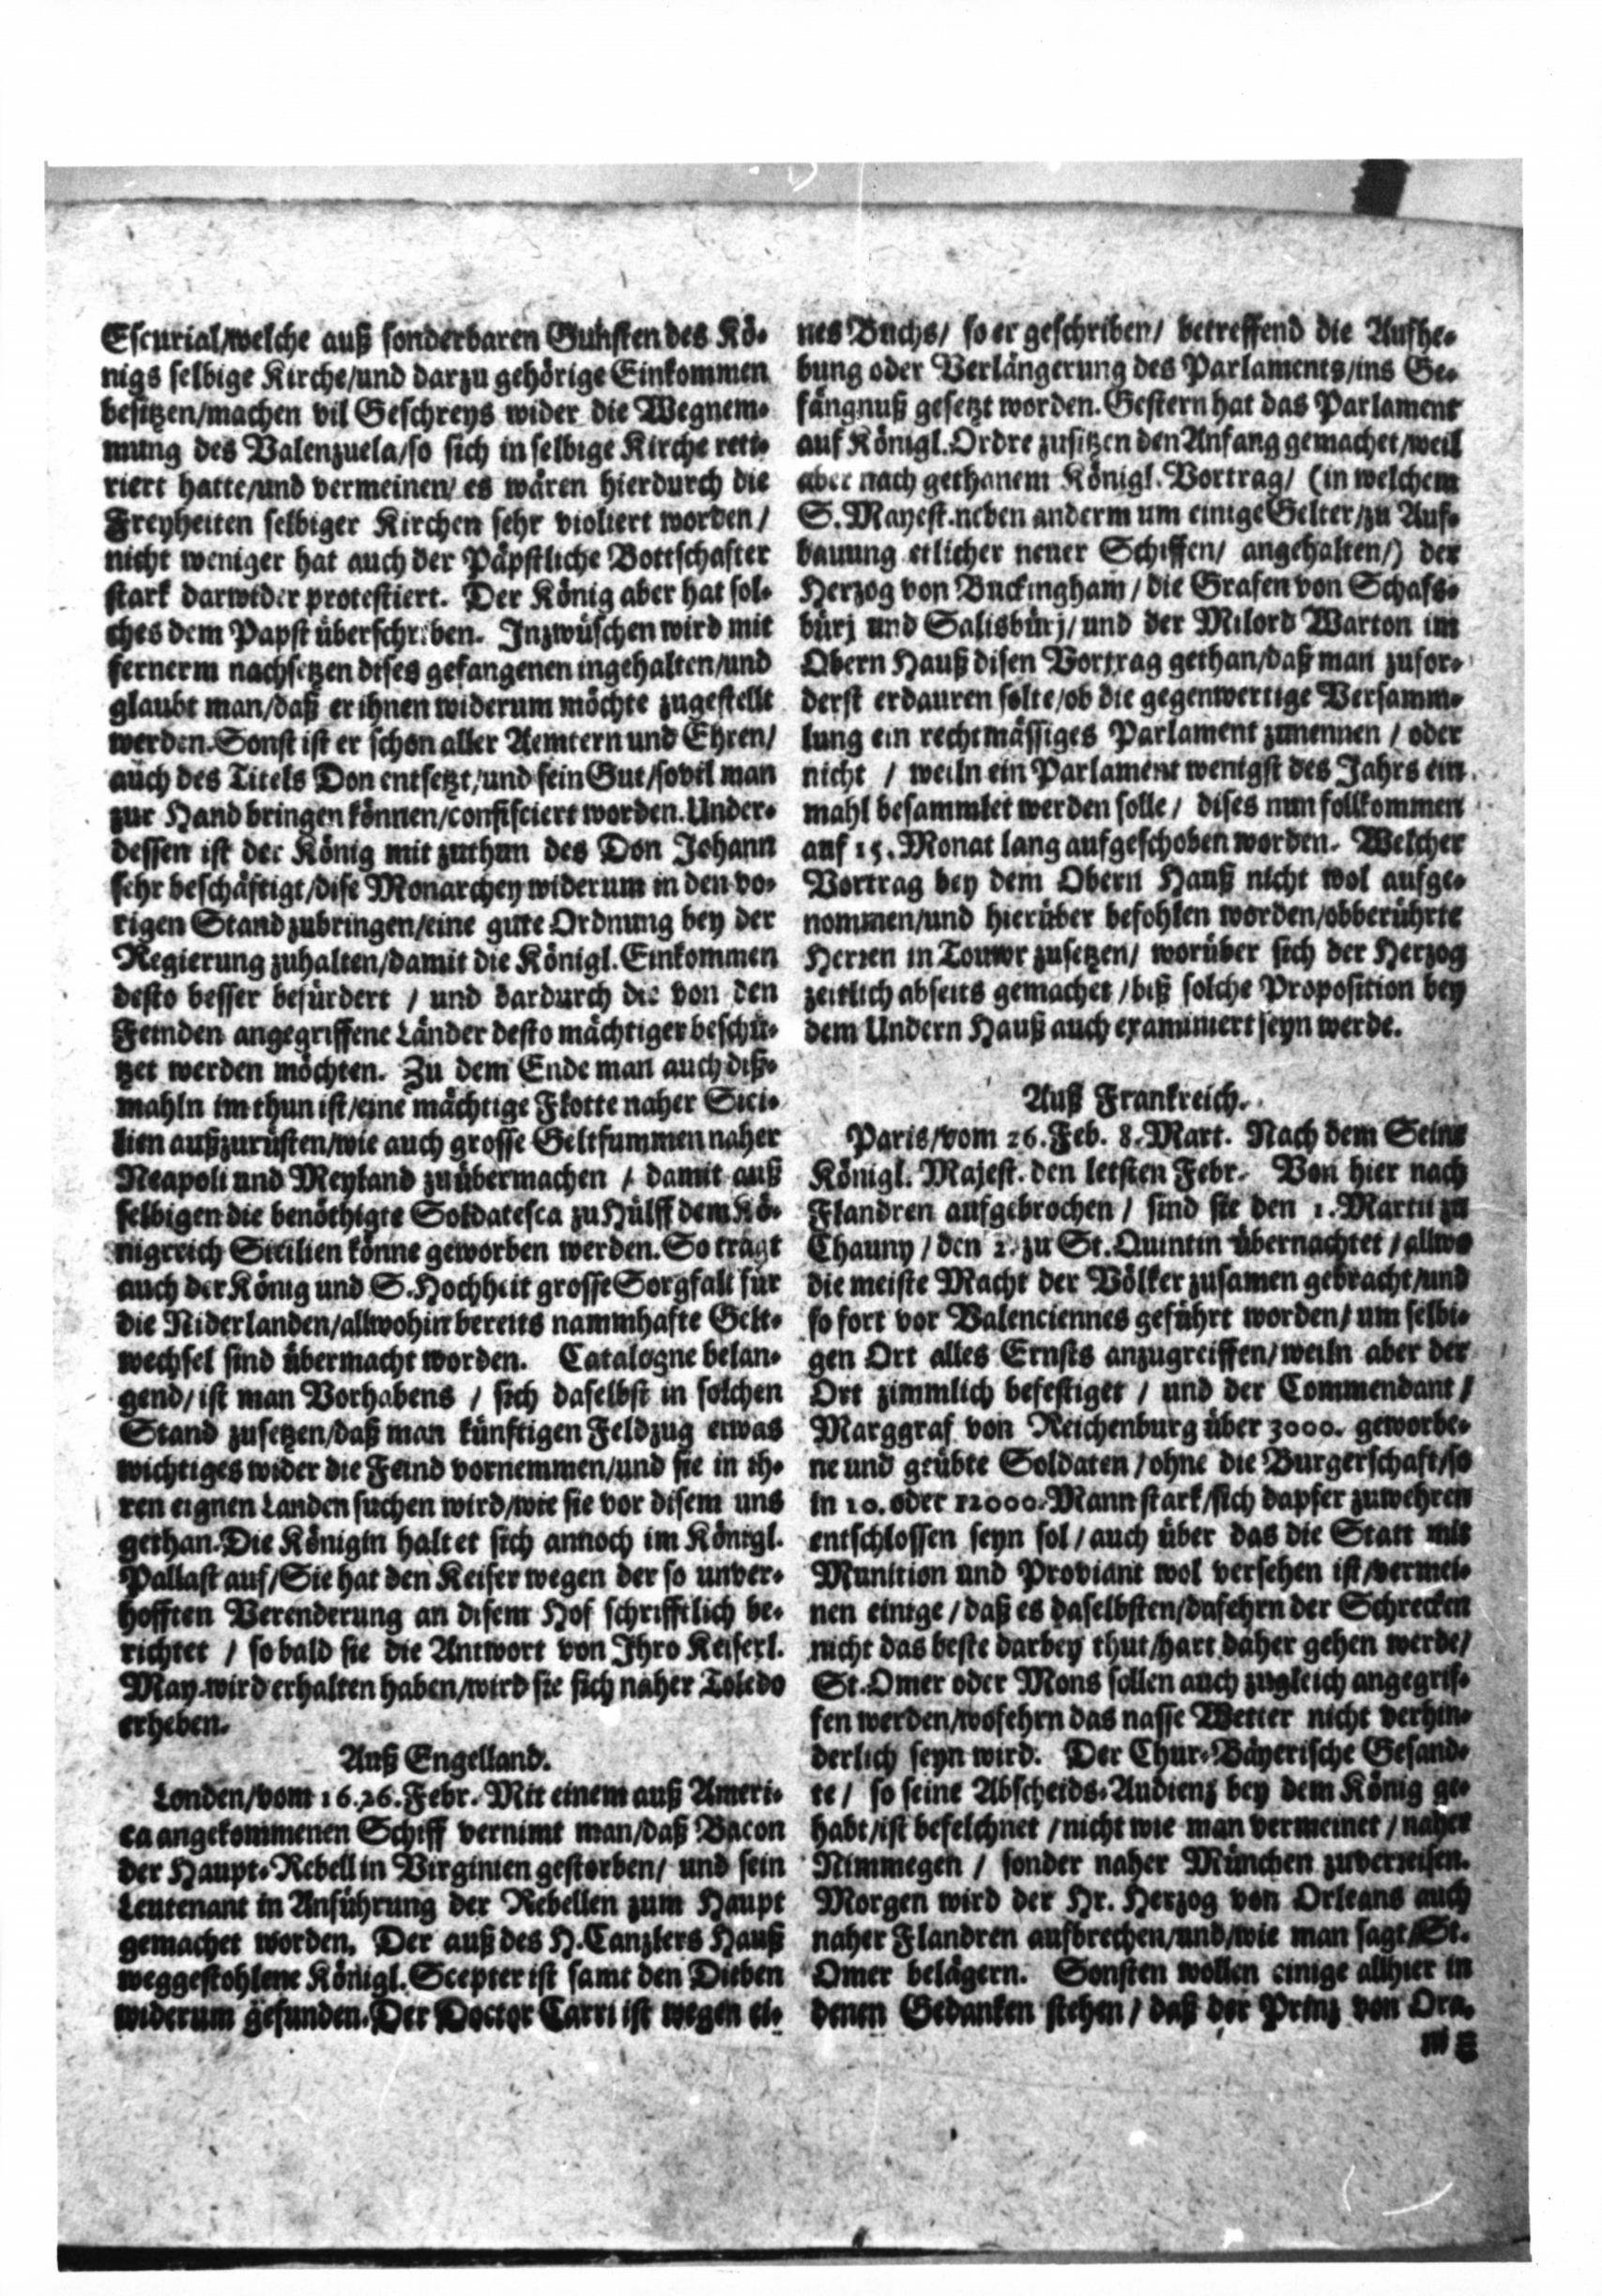 Escurial/welche auß sonderbaren Gunsten des Kö-
nigs selbige Kirche/und darzu gehörige Einkommen
besitzen/machen vil Geschreys wider die Wegnem-
mung des Valenzuela/so sich in selbige Kirche reti-
riert hatte/und vermeinen/ es wären hierdurch die
Freyheiten selbiger Kirchen sehr violiert worden/
nicht weniger hat auch der Päpstliche Bottschafter
stark darwider protestiert. Der König aber hat sol-
ches dem Papst überschriben. Inzwüschen wird mit
fernerm nachsetzen dises gefangenen ingehalten/und
glaubt man/daß er ihnen widerum möchte zugestellt
werden. Sonst ist er schon aller Aemtern und Ehren/
auch des Titels Don entsetzt/und sein Gut/sovil man
zur Hand bringen können/confisciert worden. Under-
dessen ist der König mit zuthun des Don Johann
sehr beschäftigt/dise Monarchey widerum in den vo-
rigen Stand zubringen/eine gute Ordnung bey der
Regierung zuhalten/damit die Königl. Einkommen
desto besser befürdert / und dardurch die von den
Feinden angegriffene Länder desto mächtiger beschü-
tzet werden möchten. Zu dem Ende man auch diß-
mahln im thun ist/eine mächtige Flotte naher Sici-
lien außzurüsten/wie auch grosse Geltsummen naher
Neapoli und Meyland zuübermachen / damit auß
selbigen die benöthigte Soldatesca zu Hülff dem Kö-
nigreich Sicilien könne geworben werden. So tragt
auch der König und S. Hochheit grosse Sorgfalt für
die Niderlanden/allwohin bereits nammhafte Gelt-
wechsel sind übermacht worden. Catalogne belan-
gend/ist man Vorhabens / sich daselbst in solchen
Stand zusetzen/daß man künftigen Feldzug etwas
wichtiges wider die Feind vornemmen/und sie in ih-
ren eignen Landen suchen wird/wie sie vor disem uns
gethan. Die Königin haltet sich annoch im Königl.
Pallast auf/Sie hat den Keiser wegen der so unver-
hofften Verenderung an disem Hof schrifftlich be-
richtet / so bald sie die Antwort von Ihro Keiserl.
May. wird erhalten haben/wird sie sich naher Toledo
erheben.
Auß Engelland.
Londen/vom 16.26. Febr. Mit einem auß Ameri-
ca angekommenen Schiff vernimt man/daß Bacon
der Haupt-Rebell in Virginien gestorben/ und sein
Leutenant in Anführung der Rebellen zum Haupt
gemachet worden. Der auß des H. Canzlers Hauß
weggestohlene Königl. Scepter ist samt den Dieben
widerum gefunden. Der Doctor Carri ist wegen ei-
nes Buchs/ so er geschriben/ betreffend die Aufhe-
bung oder Verlängerung des Parlaments/ins Ge-
fängnuß gesetzt worden. Gestern hat das Parlament
auf Königl. Ordre zusitzen den Anfang gemachet/weil
aber nach gethanem Königl. Vortrag/ (in welchem
S. Mayest. neben anderm um einige Gelter/zu Auf-
bauung etlicher neuer Schiffen/ angehalten/) der
Herzog von Buckingham / die Grafen von Schafs-
bürj und Salisbürj/ und der Milord Warton im
Obern Hauß disen Vortrag gethan/daß man zufor-
derst erdauren solte/ob die gegenwertige Versamm-
lung ein rechtmässiges Parlament zunennen / oder
nicht / weiln ein Parlament wenigst des Jahrs ein-
mahl besammlet werden solle / dises nun follkommen
auf 15. Monat lang aufgeschoben worden. Welcher
Vortrag bey dem Obern Hauß nicht wol aufge-
nommen/und hierüber befohlen worden/obberührte
Herren in Touwr zusetzen/ worüber sich der Herzog
zeitlich abseits gemachet /biß solche Proposition bey
dem Undern Hauß auch examiniert seyn werde.
Auß Frankreich.
Paris/vom 26. Feb. 8. Mart. Nach dem Seine
Königl. Majest. den letsten Febr. Von hier nach
Flandren aufgebrochen / sind sie den 1. Martii zu
Chauny / den 2. zu St. Quintin übernachtet / allwo
die meiste Macht der Völker zusamen gebracht/und
so fort vor Valenciennes geführt worden/ um selbi-
gen Ort alles Ernsts anzugreiffen/weiln aber der
Ort zimmlich befestiget / und der Commendant /
Marggraf von Reichenburg über 3000. geworbe-
ne und geübte Soldaten / ohne die Burgerschaft/so
in 10. oder 12000. Mann stark/sich dapfer zuwehren
entschlossen seyn sol / auch über das die Statt mit
Munition und Proviant wol versehen ist/vermei-
nen einige / daß es daselbsten/dafehrn der Schrecken
nicht das beste darbey thut/hart daher gehen werde/
St. Omer oder Mons sollen auch zugleich angegrif-
fen werden/wofehrn das nasse Wetter nicht verhin-
derlich seyn wird. Der Chur-Bäyerische Gesand-
te / so seine Abscheids-Audienz bey dem König ge-
habt/ist befelchnet / nicht wie man vermeinet / naher
Nimmegen / sonder naher München zuverreisen.
Morgen wird der Hr. Herzog von Orleans auch
naher Flandren aufbrechen/und/wie man sagt/St.
Omer belägern. Sonsten wollen einige allhier in
denen Gedanken stehen / daß der Prinz von Ora-